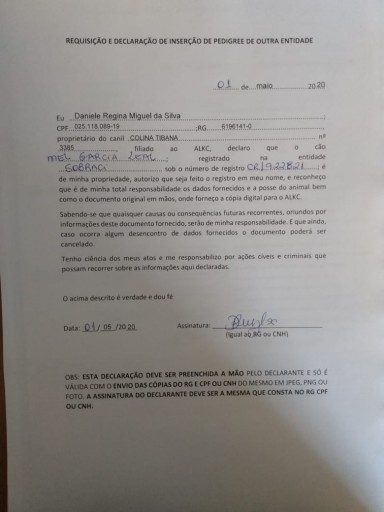 REQUISIÇÃO E DECLARAÇÃO DE INSERÇÃO DE PEDIGREE DE OUTRA ENTIDADE
01 de maio 2020
Eu Daniele Regina Miguel da Silva
CPF 025.118.089-19 ;RG 6196141-0
proprietário do canil COLINA TIBANA nº
3385 , filiado ao ALKC, declaro que o cão
MEL GARCIA LEAL ; registrado na entidade
SOBRACI sob o número de registro é
de minha propriedade, autorizo que seja feito o registro em meu nome, e reconheço
que é de minha total responsabilidade os dados fornecidos e a posse do animal bem
como o documento original em mãos, onde forneço a cópia digital para o ALKC.
Sabendo-se que quaisquer causas ou consequências futuras recorrentes, oriundos por
informações deste documento fornecido, serão de minha responsabilidade. E que ainda,
caso ocorra algum desencontro de dados fornecidos o documento poderá ser
cancelado.
Tenho ciência dos meus atos e me responsabilizo por ações cíveis e criminais que
possam recorrer sobre as informações aqui declaradas.
O acima descrito é verdade e dou fé
Data: 01 / 05 /2020 Assinatura:
(Igual ao RG ou CNH)
OBS: ESTA DECLARAÇÃO DEVE SER PREENCHIDA A MÃO PELO DECLARANTE E SÓ É
VÁLIDA COM O ENVIO DAS CÓPIAS DO RG E CPF OU CNH DO MESMO EM JPEG, PNG OU
FOTO. A ASSINATURA DO DECLARANTE DEVE SER A MESMA QUE CONSTA NO RG CPF
OU CNH.